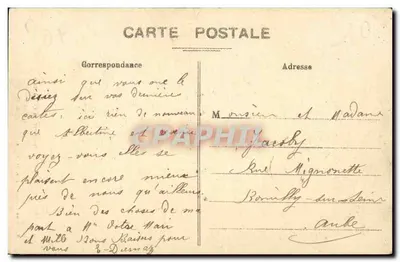 CARTE POSTALE
Correspondance
Adresse
ainsi que vous me le
désiez sur vos dernières
cartes; ici rien de nouveau
que Albertine et
voyez-vous elles se
plaisent encore mieux
près de nous qu'ailleurs
Bien des choses de ma
part à Mr Votre Mari
et Mille Bons Baisers pour
vous
Monsieur et Madame
Rue Mignonette
Romilly-sur-Seine
Aube
CPARAMA